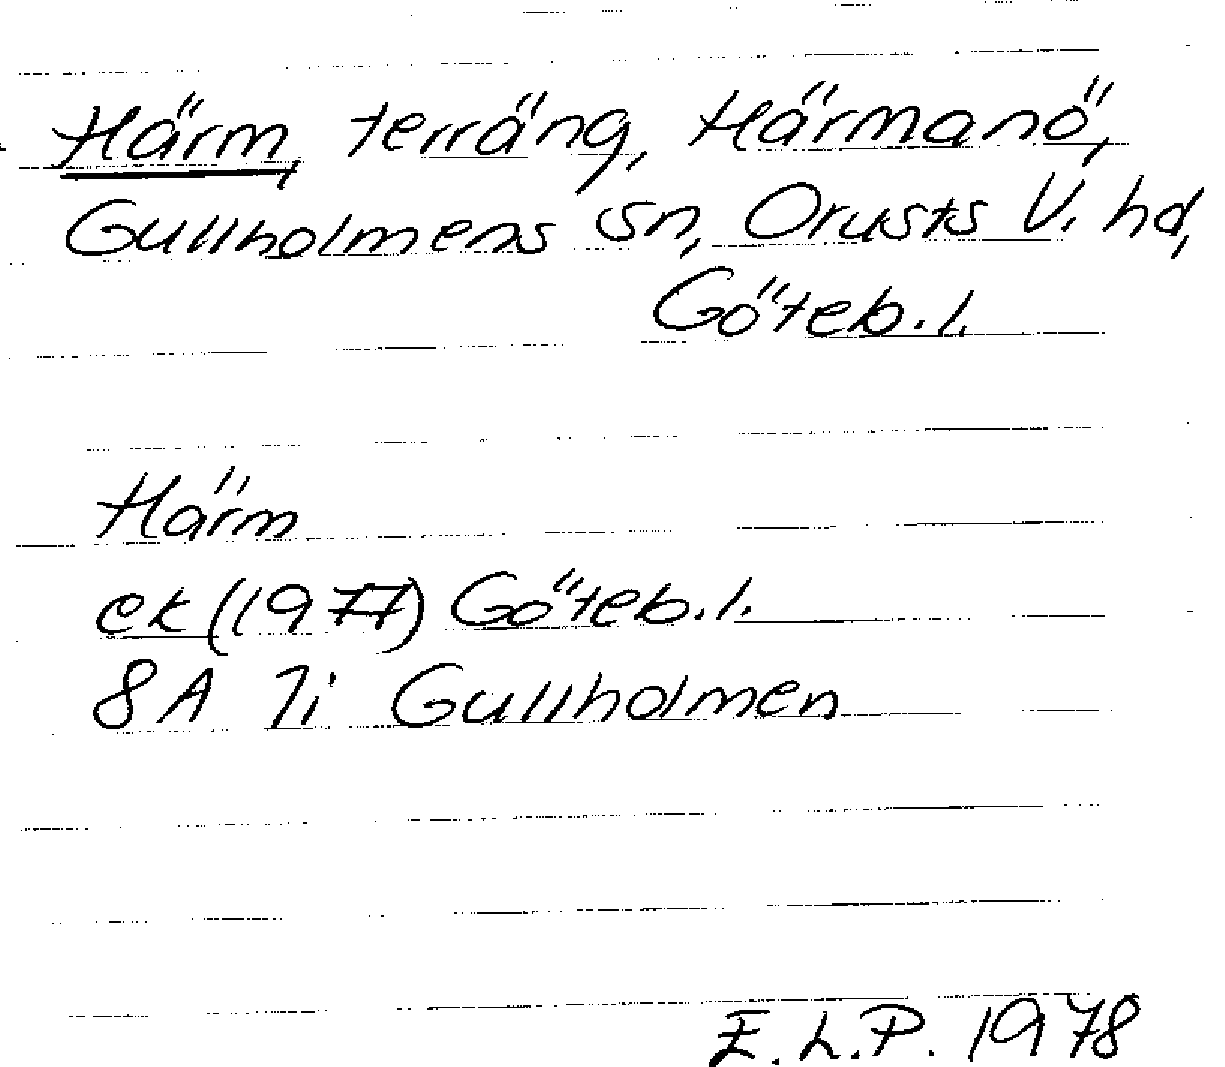 Härm, terräng, Härmanö,
Gullholmens sn, Orusts V. hd,
Göteb.l.
Härm
ek (1977) Göteb.l.
8A 7i Gullholmen
E.L.P. 1978